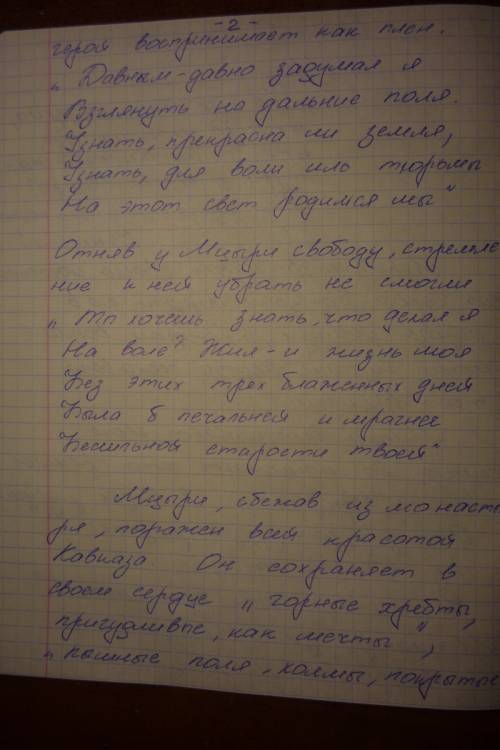 - 2 -
героя воспринимает как плен.
„ Давным-давно задумал я
Взглянуть на дальние поля.
Узнать, прекрасна ли земля,
Узнать, для воли иль тюрьмы
На этот свет родимся мы"
Отняв у Мцыри свободу, стремле
ние к ней убрать не смогли
„ Ты хочешь знать, что делал я
На воле? Жил - и жизнь моя
Без этих трех блаженных дней
Была б печальней и мрачнее
Бессильной старости твоей"
Мцыри, сбежав из монасты
ря, поражен всей красотой
Кавказа Он сохраняет в
своем сердце „ горные хребты,
причудливые, как мечты",
„ пышные поля, холмы, покрытые